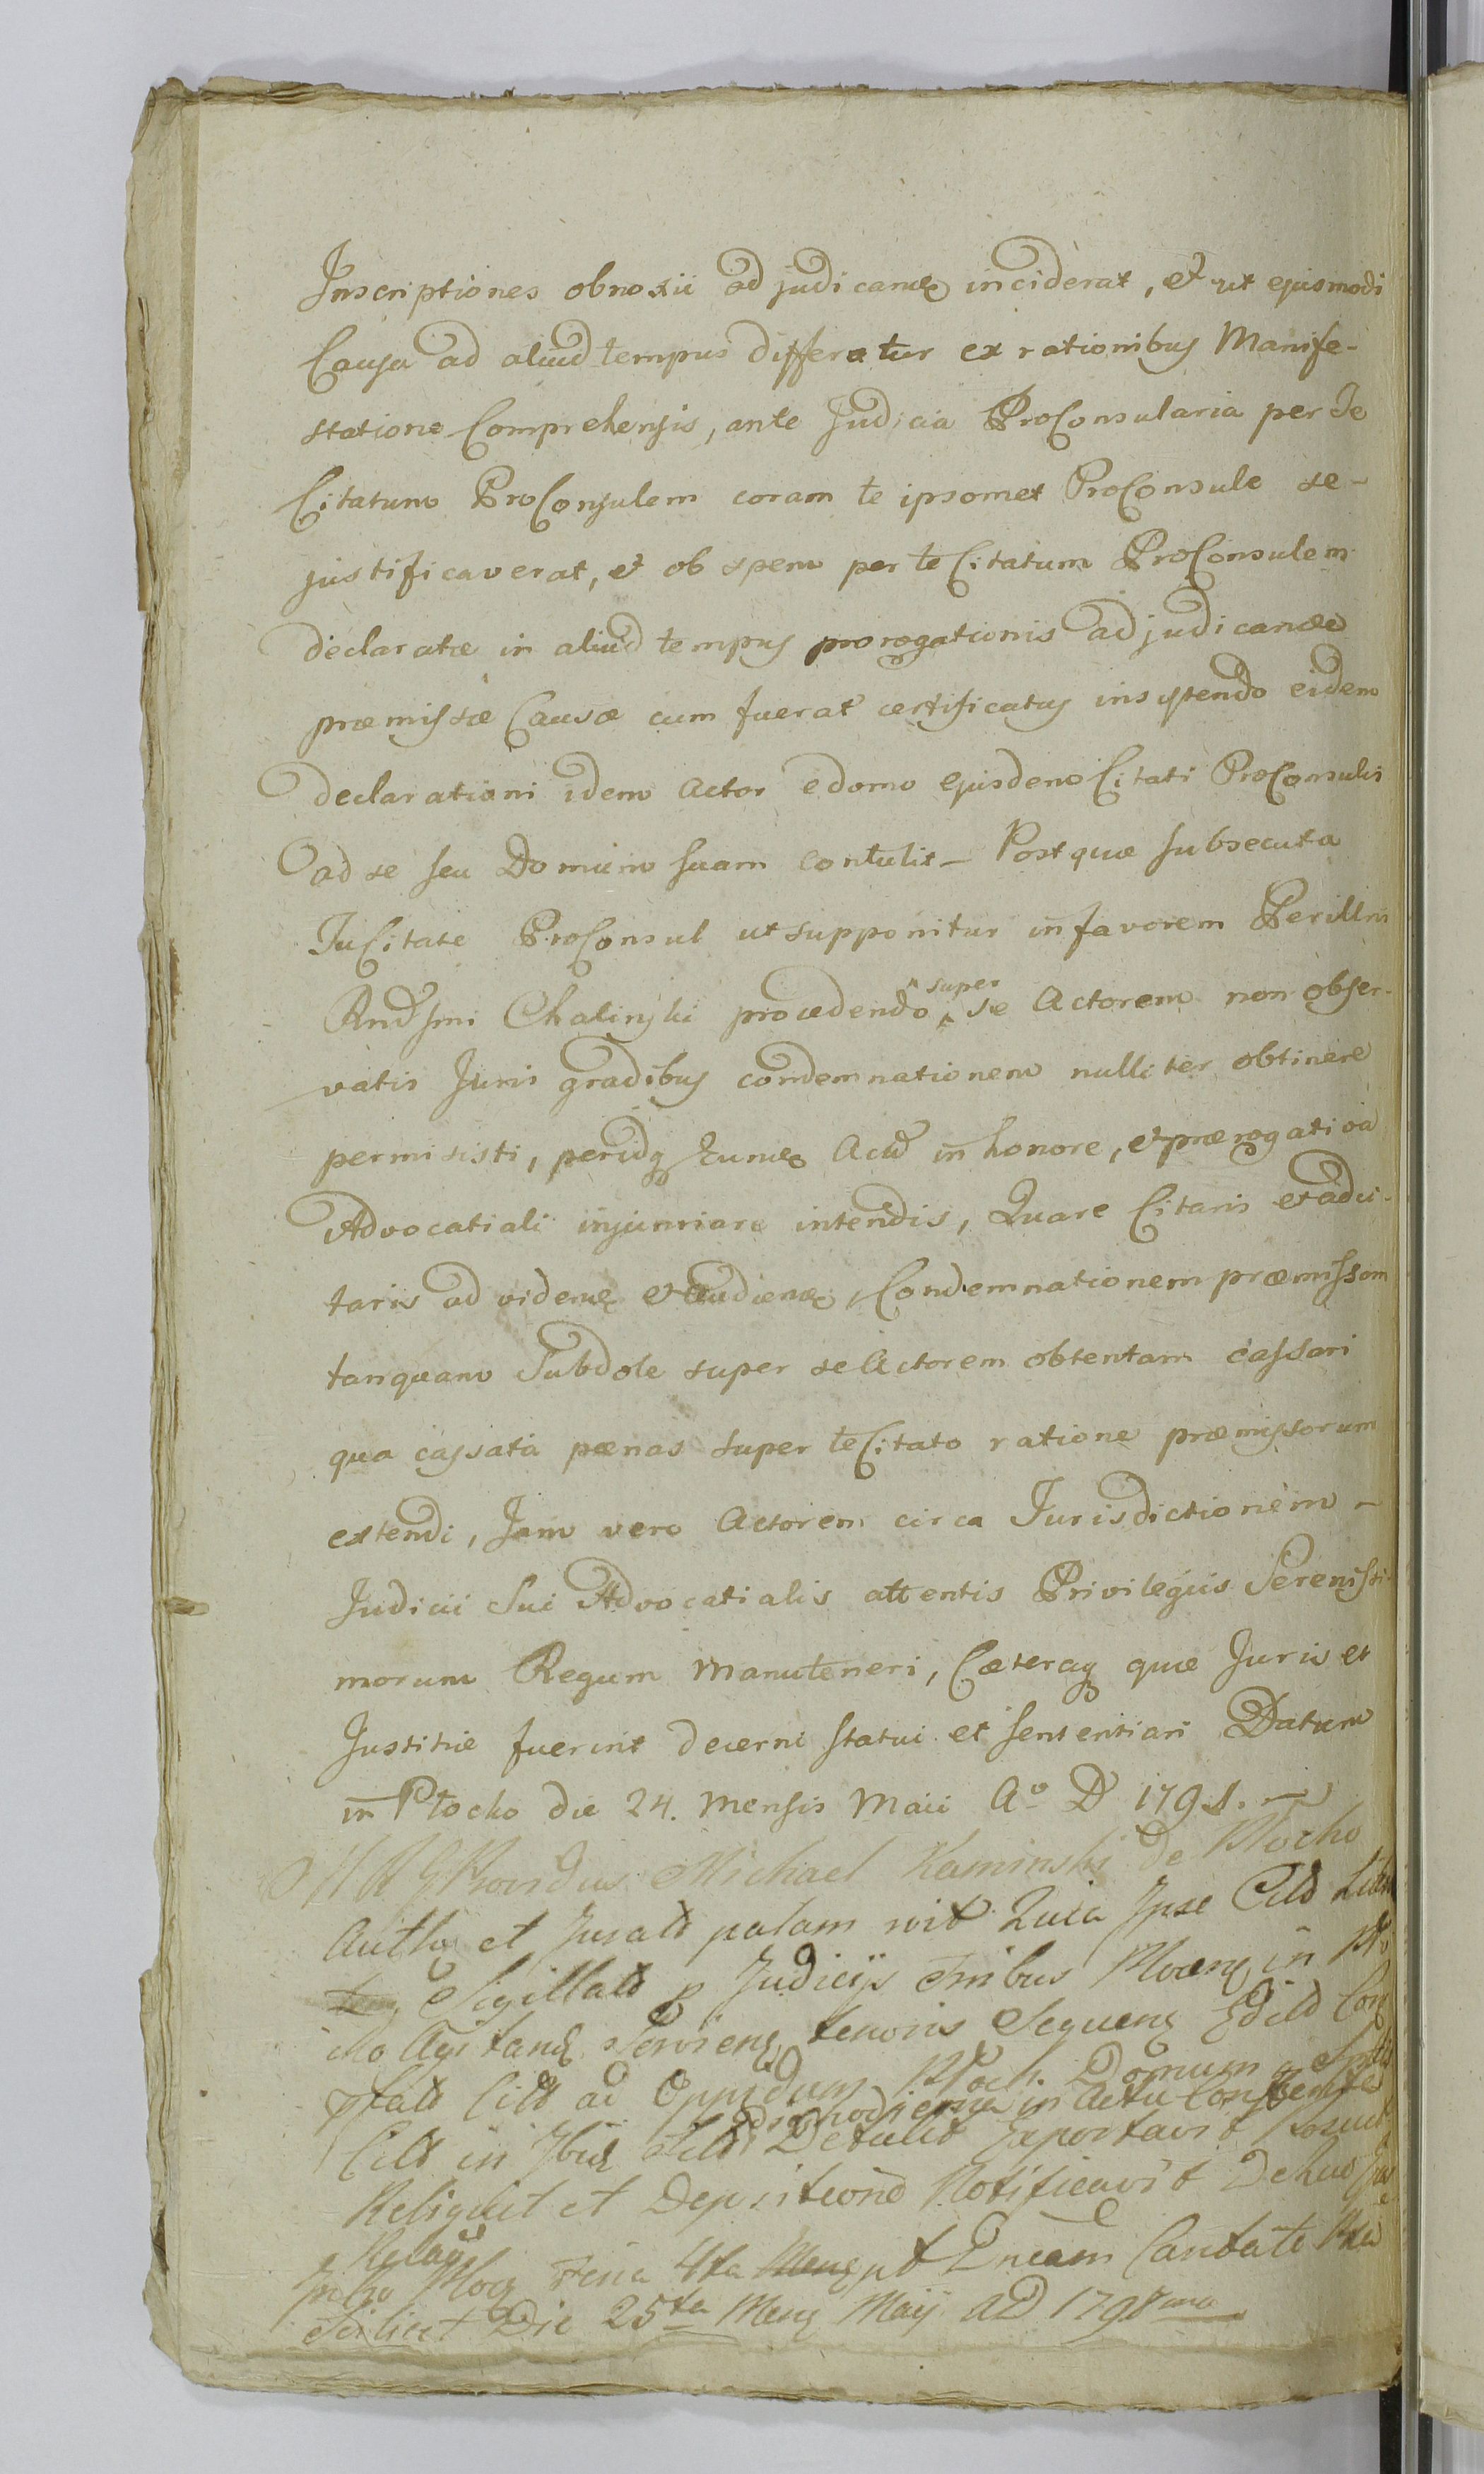 Inscriptiones obnoxii adjudicand inciderat, et ut ejusmodi
Causa ad aliud tempus differatur ex rationibus Manife-
statione Comprehensis, ante Judicia ProConsularia per Te
Citatum ProConsulem coram te ipsomet ProConsule se-
justificaverat, et ob spem per te Citatum ProConsulem
declaratæ in aliud tempus prorogationis adjudicandæ
præmissæ Causæ cum fuerat certificatus insistendo eidem
declarationi idem Actor e domo ejusdem Citati ProConsulis
ad se seu Domum suam contulit – Post quæ subsecuta
Tu Citate ProConsul ut supponitur in favorem Perillris
Rndssmi Chalinski procedendo super se Actorem non obser-
vatis Juris gradibus condemnationem nulliter obtinere
permisisti, per idq Eund Act in honore, et prærogativa
Advocatiali injuriare intendis, Quare Citaris et adci-
taris ad vidend et Audiend, Condemnationem præmissam
tanquam Subdole super se Actorem obtentam cassari
qua cassata pænas super te Citato ratione præmissorum
extendi, Jam vero Actorem circa Jurisdictionem –
Judicii Sui Advocatialis attentis Privilegiis Serenissi-
morum Regum manuteneri, Cæteraq quæ Juris et
Justitiæ fuerint decerni statui et sententiari Datum
in Płocko die 24. Mensis Maii Ao D 1791. –
Providus Michael Kaminski de Płocko
Auth et Jurat palam rvit Quia Ipse
Sigillat p Judicijs Płocens in Pło
cko Agitand Serviens tenoris Sequens
Citt ad Oppidum Płock Domum
hodierna in Actu
in Ibid Detulit Exportavit Posuit
Reliquit et Depositione Notificavit De huo
Relat
Płoc Feria 4ta pt Dncam Cantate
Scilicet Die 25ta Mens Maij AD 179